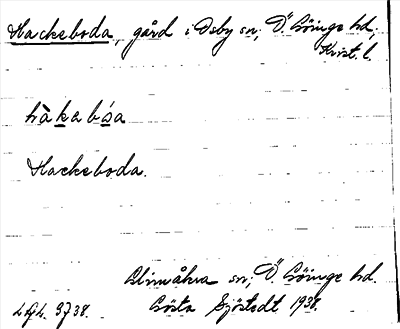 Hackeboda, gård i Osby sn; Ö. Göinge hd,
Krist. l.
hàkabóa
Hackeboda.
Glimåkra sn; Ö. Göinge hd.
Gösta Sjöstedt 1938.
3738.